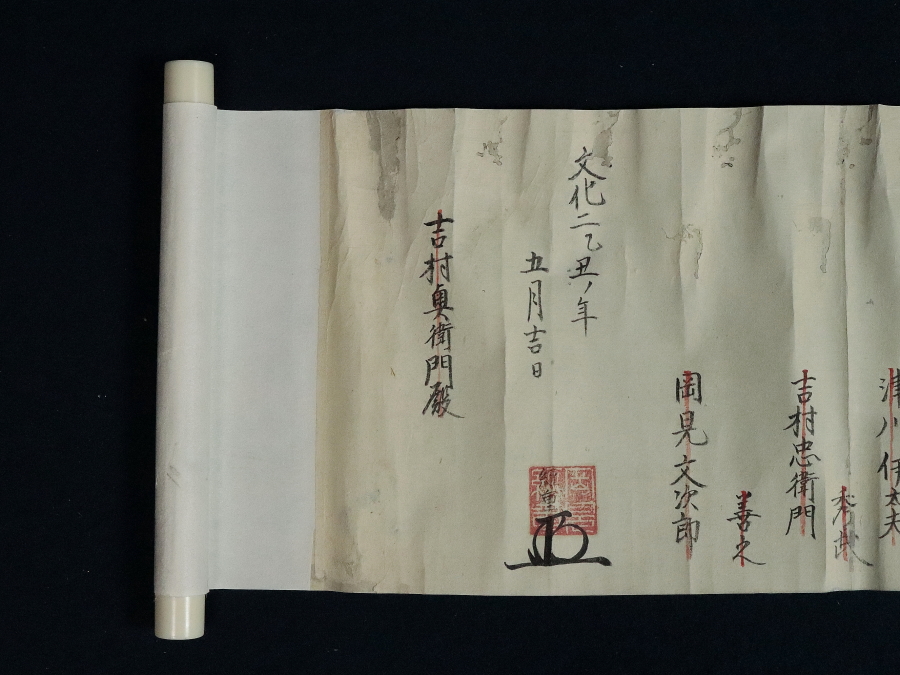 津川伊太夫
秀武
吉村忠衛門
善之
岡見文次郎
文化二乙丑ノ年
五月吉日
吉村奥衛門殿